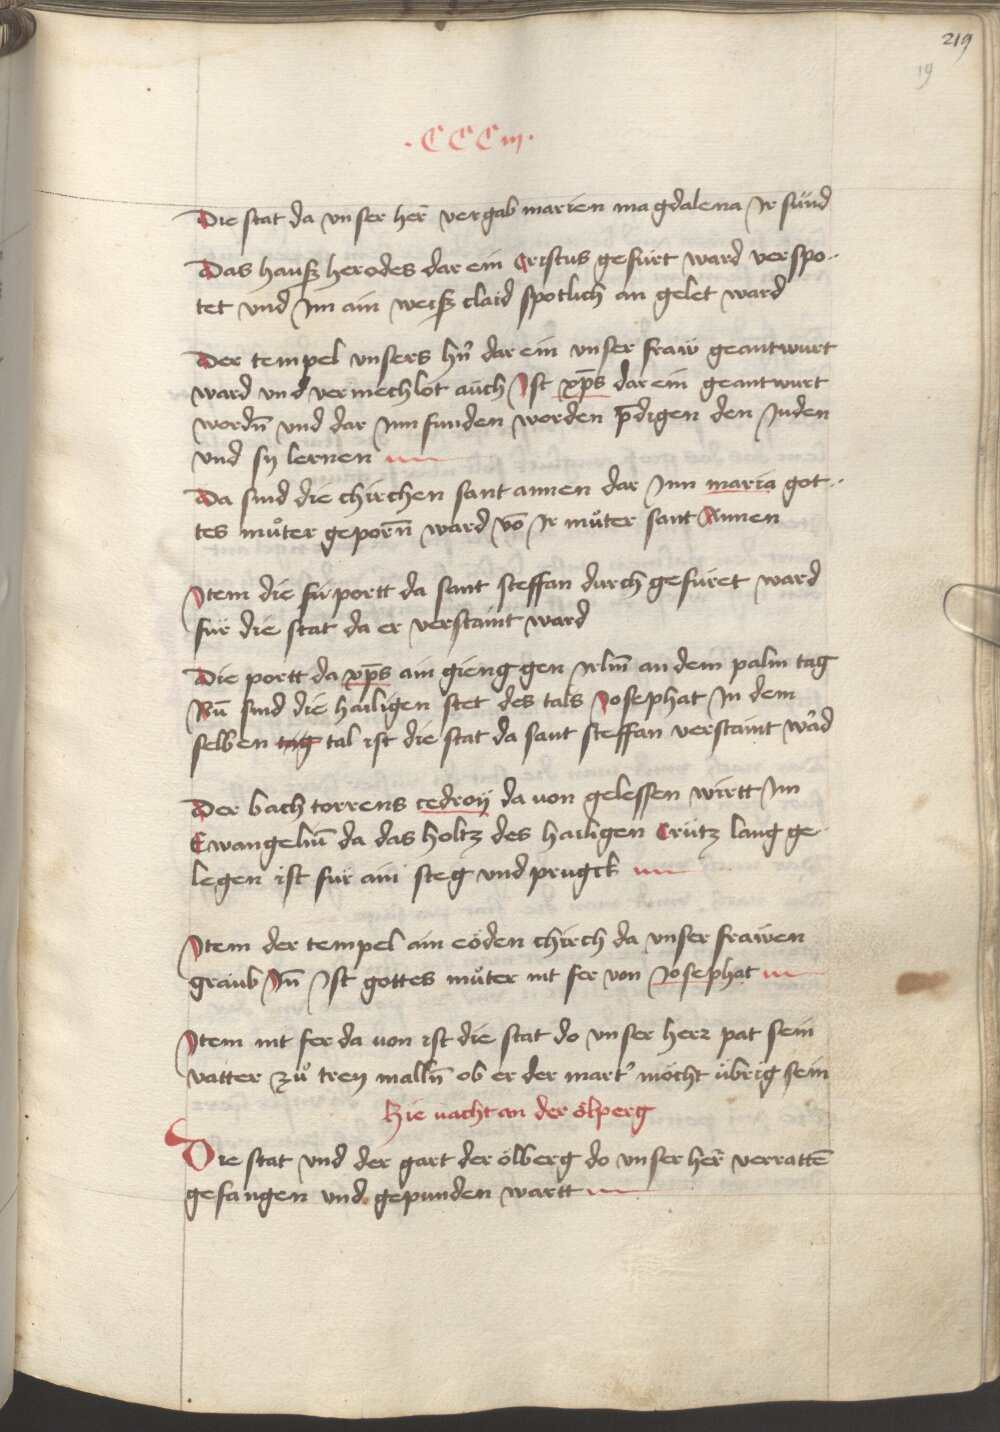 219
19
· C C C iij ·
Die stat da vnser her̄ vergab marien magdalena Ir sünd
Das hauß herodes dar ein Cristus gefürt ward verspo-
tet vnd Im ain weiß claid spotlich an gelet ward
Der tempel vnsers hn̄ dar ein vnser fraw geantwurt
ward vnd vermechlot aüch Ist xp̄s dar ein geantwurt
wordn̄ vnd dar Inn funden worden p̄digen den Juden
vnd sy lernen
Da sind die chirchen sant annen dar Inn maria got-
tes můter geporn̄ ward vō Ir můter sant Annen
Item die für portt da sant steffan durch gefüret ward
für die stat da er verstaint ward
Die portt da xp̄s ain gieng gen Irlm̄ an dem palm tag
Nū sind die hailigen stet des tals Josephat In dem
selben tag tal ist die stat da sant steffan verstaint ward
Der bach torrens cedroÿ da von gelessen wirtt Im
Ewangeliū da das holtz des hailigen Crütz lang ge-
legen ist für ain steg vnd prugck
Item der tempel ain eöden chirch da vnser frawen
graub In̄ Ist gottes můter nit fer von Josephat
Item nit fer da von ist die stat do vnser herr pat sein
vatter zů treÿ malln̄ ob er der mart' möcht übrig sein
Hie nacht an der ölperg
Die stat vnd der gart der ölberg do vnser her̄ verrattē
gefangen vnd gepunden wartt